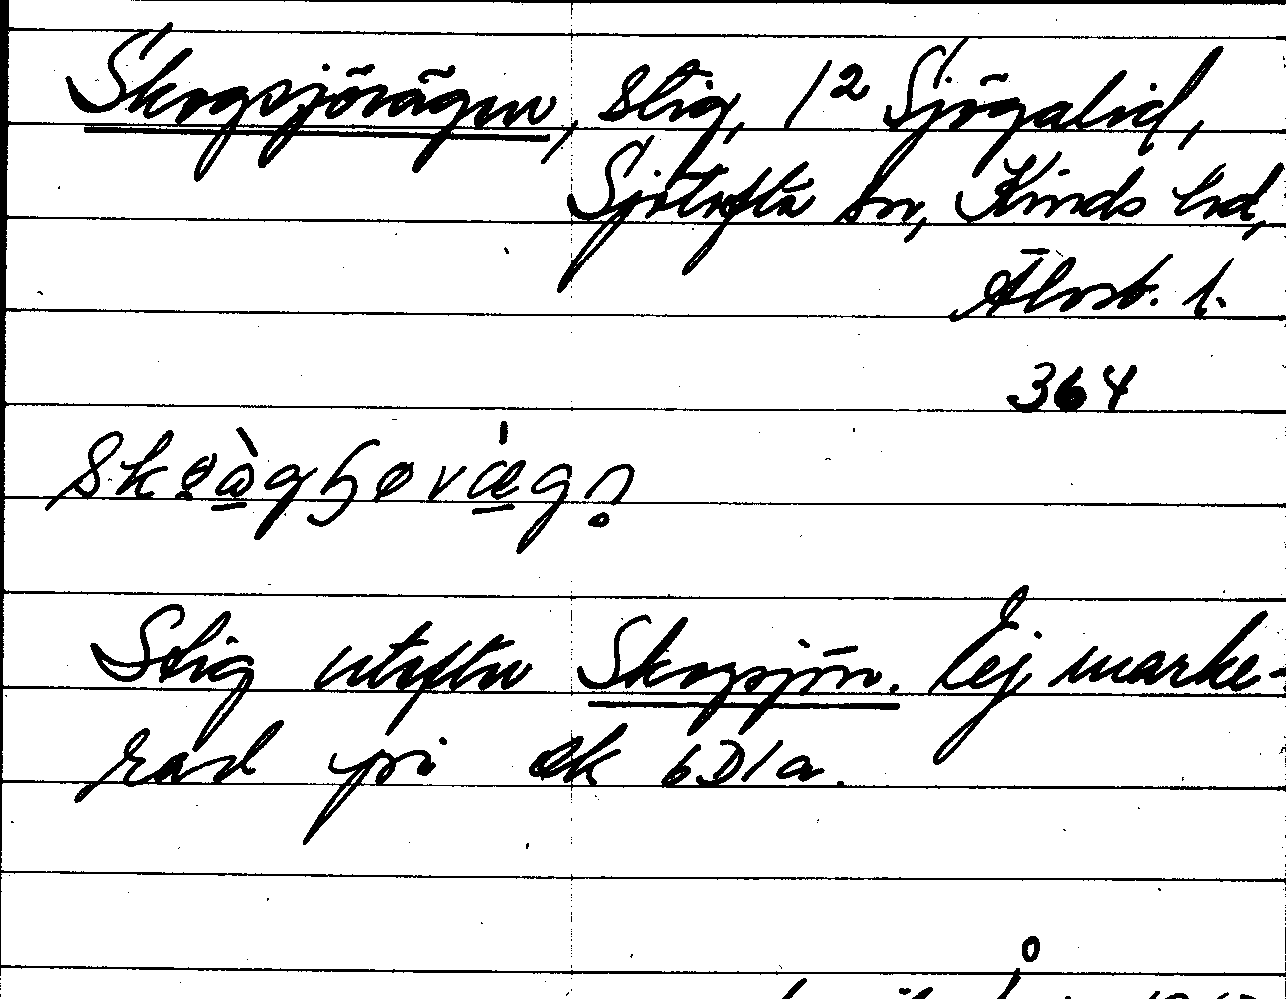 Skogsjövägen, stig, 1² Sjögalid,
Sjötofta sn, Kinds hd,
Älvsb. l.
364
Stig utefter Skogsjön. Ej marke-
rad på ek 6D1a.